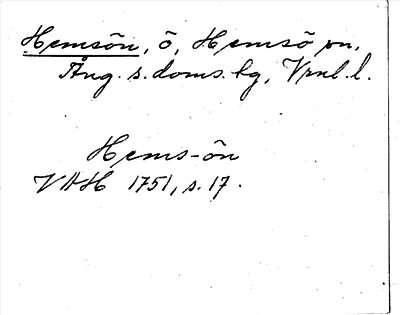 Hemsön, ö, Hemsö sn,
Ång. s. doms.lg, Vrnl.l.
Hems-ön
VAH 1751, s. 17.